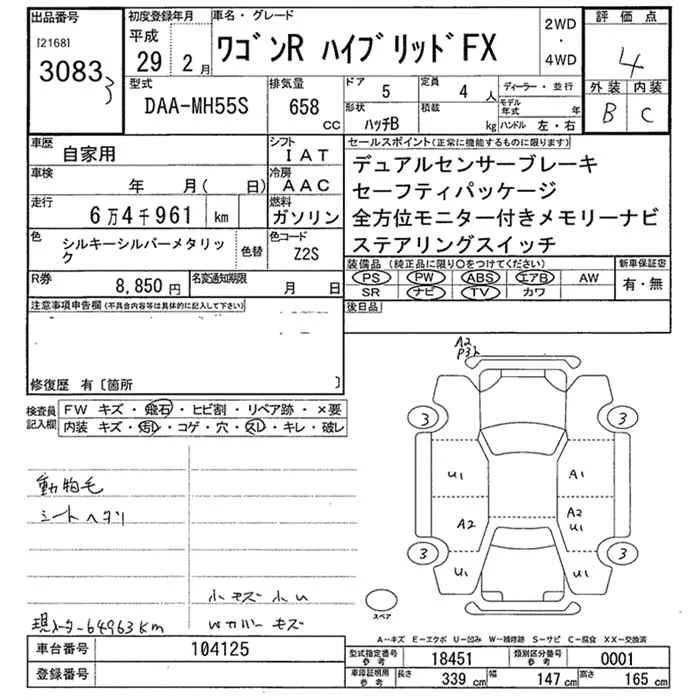 出品番号 初度登録年月 車名・グレード 2WD・4WD 評価点
[2168] 3083 平成 29年 2月 ワゴンR ハイブリッドFX 4
型式 排気量 ドア 5 定員 4人 ディーラー・並行 外装 内装
DAA-MH55S 658 CC 形状 ハッチB 積載 kg モデル年式 年 B C
ハンドル 左・右
車歴 自家用 シフト IAT セールスポイント(正常に機能するものに限ります)
車検 年 月( 日) 冷房 AAC デュアルセンサーブレーキ
走行 6万4千961 km 燃料 ガソリン セーフティパッケージ
全方位モニター付きメモリーナビ
色 シルキーシルバーメタリック 色替 色コード Z2S ステアリングスイッチ
装備品(純正品に限り○をつけてください) 新車保証書
R券 8,850円 名変通知期限 月 日 PS PW ABS エアB AW 有・無
SR ナビ TV カワ
注意事項申告欄(不具合内容等は具体的に記入して下さい) 後日品
修復歴 有〔箇所 〕
検査員記入欄 FW キズ・飛石・ヒビ割・リペア跡・×要
内装 キズ・汚レ・コゲ・穴・スレ・キレ・破レ
動物毛
シートヘタリ
小キズ小U
Wカバーキズ
現メーター64963km
A2
P3ト
3 3
U1 A1
A2 A2
U1
3 3
U1 U1
スペア
A-キズ E-エクボ U-凹み W-補修跡 S-サビ C-腐食 XX-交換済
車台番号 104125 型式指定番号 参考 18451 類別区分番号 参考 0001
登録番号 車庫証明用 参考 長さ 339 cm 幅 147 cm 高さ 165 cm